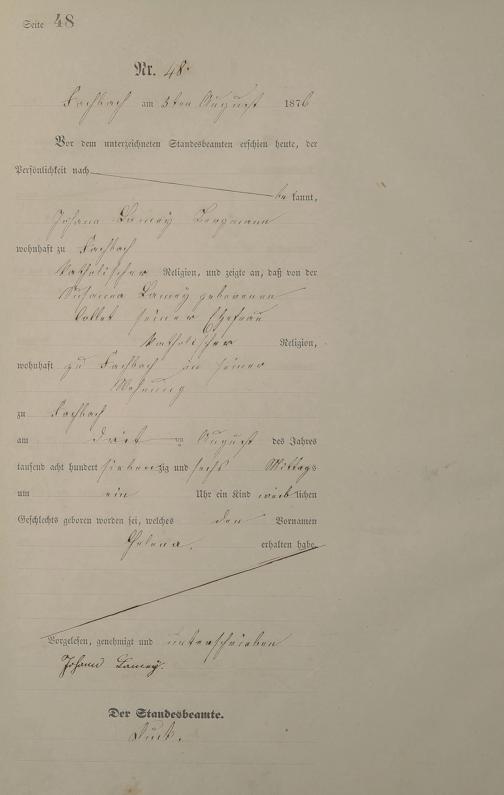 Seite 48
Nr. 48.
Fachbach am 5ten August 1876
Vor dem unterzeichneten Standesbeamten erschien heute, der
Persönlichkeit nach
be kannt,
Johann Lamey Bergmann
wohnhaft zu Fachbach
katholischer Religion, und zeigte an, daß von der
Susanna Lamey geborenen
seiner Ehefrau
katholischer Religion,
wohnhaft zu Fachbach in seiner
Wohnung
zu Fachbach
am August des Jahres
tausend acht hundert siebenzig und sechs Mittags
um ein Uhr ein Kind weiblichen
Geschlechts geboren worden sei, welches den Vornamen
Helena. erhalten habe.
Vorgelesen, genehmigt und unterschrieben
Johann Lamey.
Der Standesbeamte.